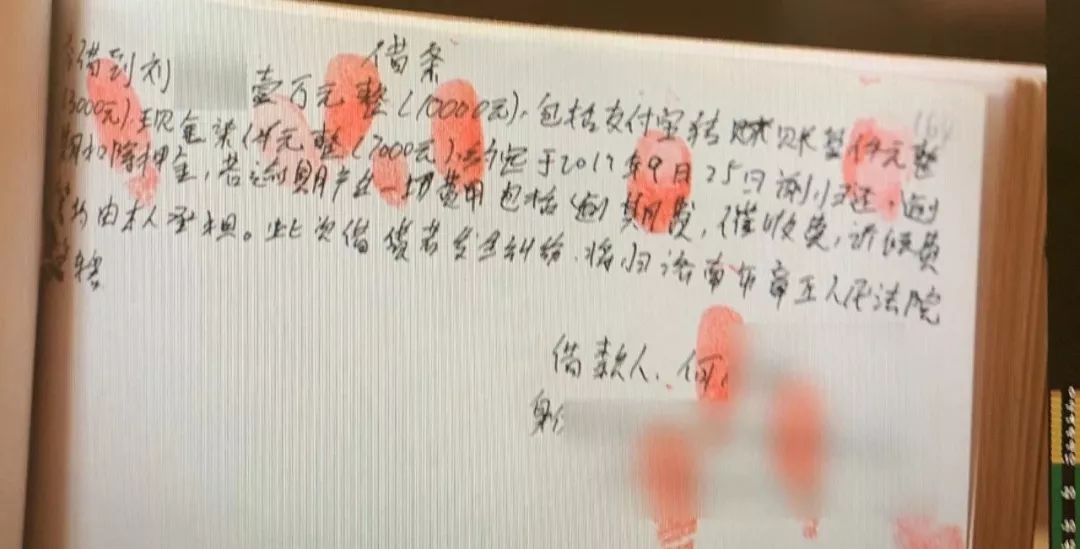 借条
今借到刘 壹万元整(10000元),包括支付宝转账叁仟元整
(3000元),现金柒仟元整(7000元).约定于2017年9月25日前归还,逾
期扣除押金,若逾期产生一切费用包括逾期费,催收费,诉讼费
等均由本人承担。此次借债若发生纠纷,将归济南市章丘人民法院
管辖
借款人、何
身份